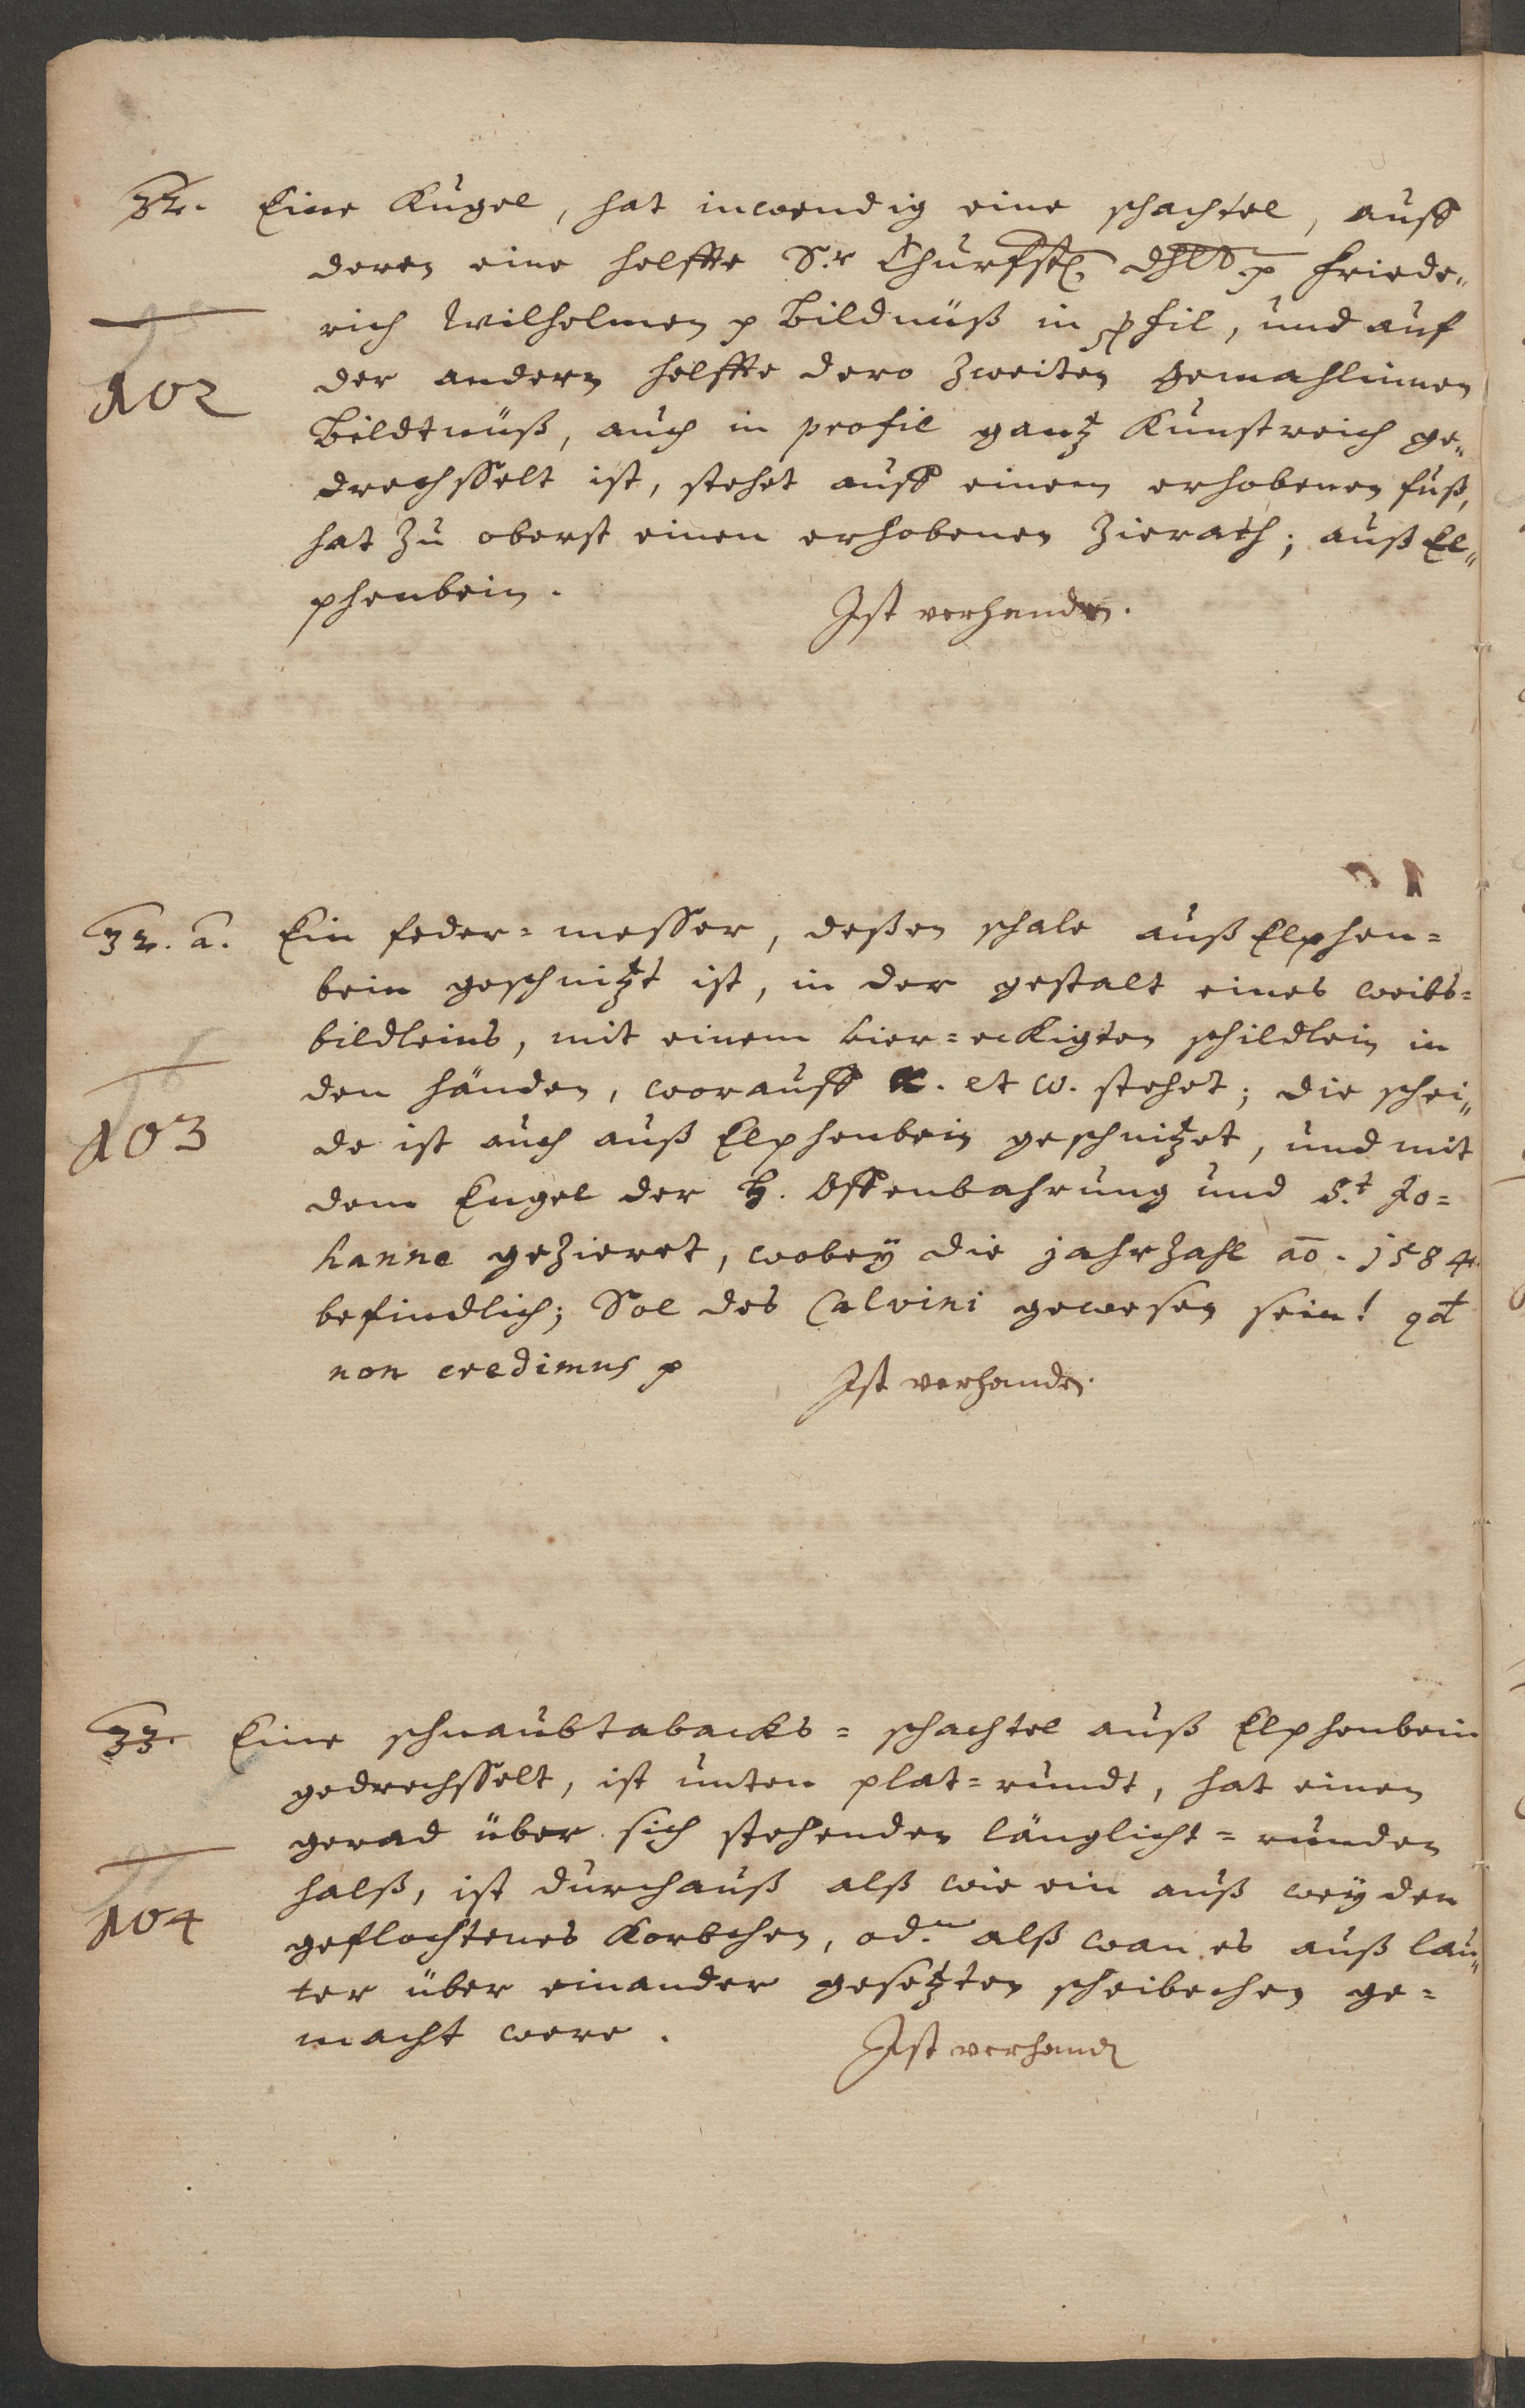 32. Eine Kugel, hat inwendig eine schachtel, auff
deren eine helffte S.r Churfstl. dhlt. p friede„
rich Wilhelmen p Bildnüß in pfil, und auf
102
der andern helffte dero zweiten Gemahlinnen
Bildtnüß, auch in profil gantz Kunstreich ge„
drechsselt ist, stehet auff einem erhobenen fuß,
hat zu oberst einen erhobenen Zierath; auß El„
phenbein.
Ist verhanden.
32. a. Ein feder=messer, deßen schale auß Elphen=
bein geschnitzt ist, in der gestalt eines weibs=
bildleins, mit einem vier=eckigten schildlein in
den händen, worauff K. et W. stehet; die schei„
103
de ist auch auß Elphenbein geschnitzet, und mit
dem Engel der H. Offenbahrung und S.t Jo=
hanne gezieret, wobeÿ die jahrzahl ao. 1584.
befindlich; Sol des Calvini gewesen sein! qd
non credimus p
Ist verhanden.
33. Eine schnaubtabacks=schachtel auß Elphenbein
gedrechsselt, ist unten plat=rundt, hat einen
gerad über sich stehenden länglicht=runden
halß, ist durchauß alß wie ein auß weÿden
104
geflochtenes Korbchen, od. alß wan es auß lau„
ter über einander gesetzten scheibechen ge=
macht were.
Ist verhand